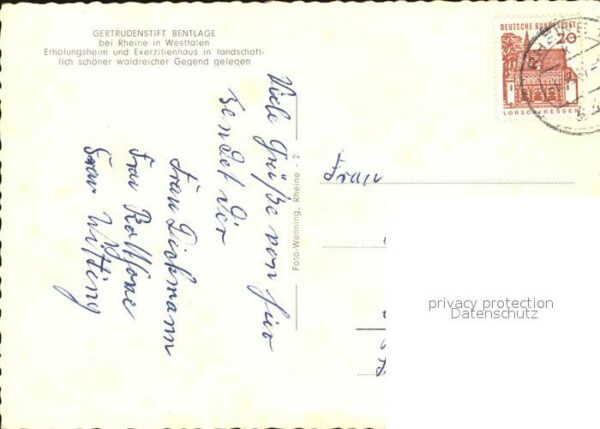 GERTRUDENSTIFT BENTLAGE
bei Rheine in Westfalen
Erholungsheim und Exerzitienhaus in landschaft-
lich schöner waldreicher Gegend gelegen
Viele Grüße von hier
sendet Dir
Frau Dickmann
Frau
Frau Witting
Foto-Wenning, Rheine - 2
DEUTSCHE BUNDESPOST
20
LORSCH/HESSEN
RHEINE
Frau
privacy protection
Datenschutz